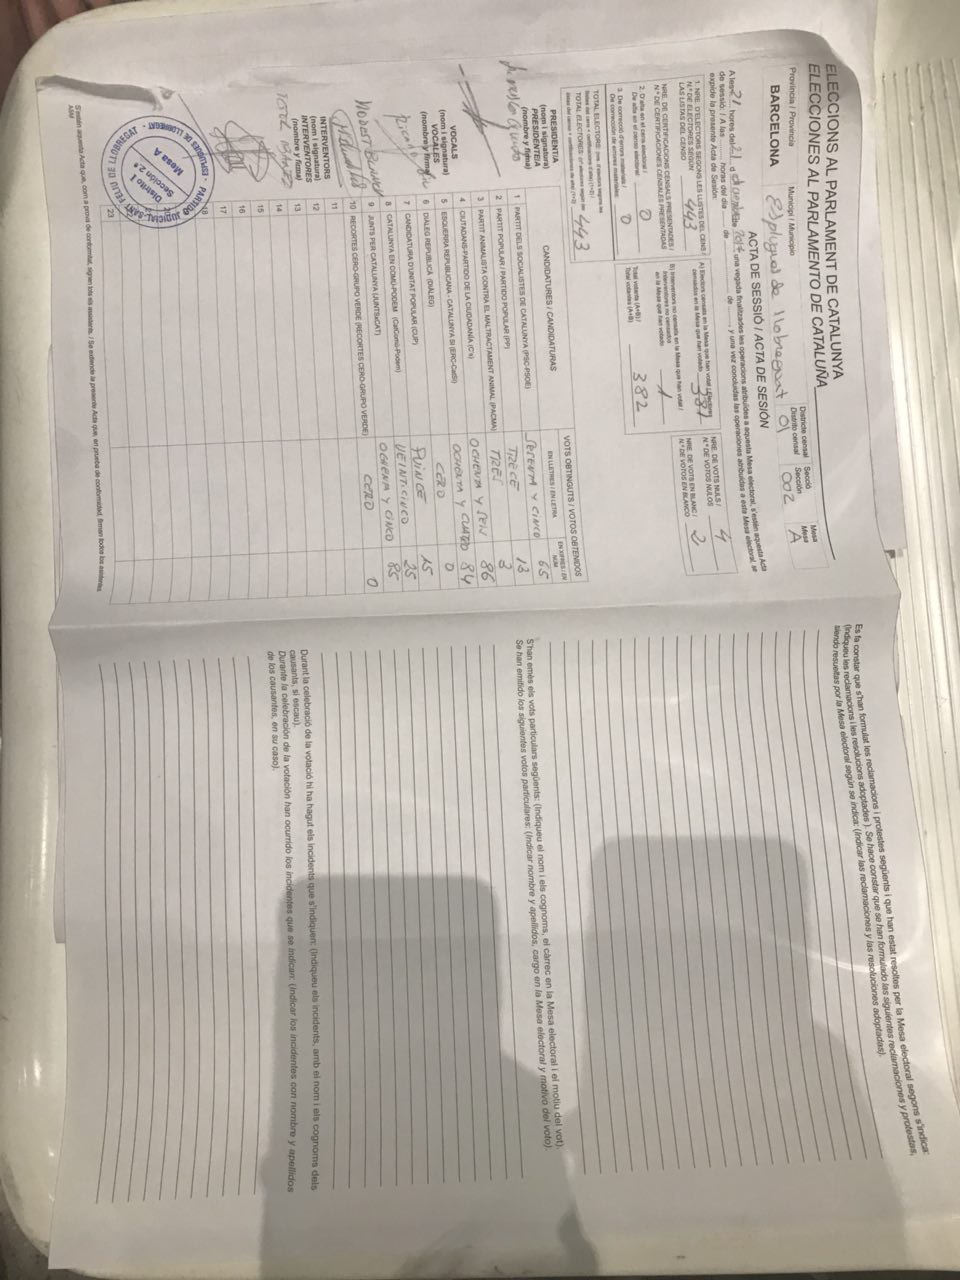 ELECCIONS AL PARLAMENT DE CATALUNYA
ELECCIONES AL PARLAMENTO DE CATALUÑA
Província / Provincia
BARCELONA
Municipi / Municipio
Esplugues de llobregat
Districte censal
Distrito censal
01
Secció
Sección
002
Mesa
Mesa
A
ACTA DE SESSIÓ / ACTA DE SESIÓN
A les 21 hores del una vegada finalitzades les operacions atribuïdes a aquesta Mesa electoral, s'estén aquesta Acta
de sessió. / A las horas del día de de , y una vez concluidas las operaciones atribuidas a esta Mesa electoral, se
expide la presente Acta de Sesión.
1. NRE. D'ELECTORS SEGONS LES LLISTES DEL CENS /
N.º DE ELECTORES SEGÚN
LAS LISTAS DEL CENSO
443
NRE. DE CERTIFICACIONS CENSALS PRESENTADES /
N.º DE CERTIFICACIONES CENSALES PRESENTADAS
2. D'alta en el cens electoral /
De alta en el censo electoral
0
3. De correcció d'errors materials /
De corrección de errores materiales
0
TOTAL ELECTORES
443
A) Electors censats en la Mesa que han votat / Electores
censados en la Mesa que han votado
381
B) Interventors no censats en la Mesa que han votat /
Interventores no censados
en la Mesa que han votado
1
Total votants (A+B) /
Total votantes (A+B)
382
NRE. DE VOTS NULS /
N.º DE VOTOS NULOS
4
NRE. DE VOTS EN BLANC /
N.º DE VOTOS EN BLANCO
2
CANDIDATURES / CANDIDATURAS
VOTS OBTINGUTS / VOTOS OBTENIDOS
EN LLETRES / EN LETRA
EN XIFRES / EN NÚM
1 PARTIT DELS SOCIALISTES DE CATALUNYA (PSC-PSOE) SESENTA Y CINCO 65
2 PARTIT POPULAR / PARTIDO POPULAR (PP) TRECE 13
3 PARTIT ANIMALISTA CONTRA EL MALTRACTAMENT ANIMAL (PACMA) TRES 3
4 CIUTADANS-PARTIDO DE LA CIUDADANÍA (C's) OCHENTA Y SEIS 86
5 ESQUERRA REPUBLICANA - CATALUNYA SÍ (ERC-CatSí) OCHENTA Y CUATRO 84
6 DIÀLEG REPUBLICÀ (DIÀLEG) CERO 0
7 CANDIDATURA D'UNITAT POPULAR (CUP) QUINCE 15
8 CATALUNYA EN COMÚ-PODEM (CatComú-Podem) VEINTICINCO 25
9 JUNTS PER CATALUNYA (JUNTSxCAT) OCHENTA Y CINCO 85
10 RECORTES CERO-GRUPO VERDE (RECORTES CERO-GRUPO VERDE) CERO 0
11
12
13
14
15
16
17
18
23
PRESIDÈNCIA
(nom i signatura)
PRESIDENTE/A
(nombre y firma)
VOCALS
(nom i signatura)
VOCALES
(nombre y firma)
INTERVENTORS
(nom i signatura)
INTERVENTORES
(nombre y firma)
ESPLUGUES DE LLOBREGAT - PARTIDO JUDICIAL: SANT FELIU DE LLOBREGAT
Distrito 1
Sección 2.ª
Mesa A
Signen aquesta Acta que, com a prova de conformitat, signen tots els assistents. / Se extiende la presente Acta que, en prueba de conformidad, firman todos los asistentes.
Es fa constar que s'han formulat les reclamacions i protestes següents i que han estat resoltes per la Mesa electoral segons s'indica:
(Indiqueu les reclamacions i les resolucions adoptades). Se hace constar que se han formulado las siguientes reclamaciones y protestas,
siendo resueltas por la Mesa electoral según se indica: (Indicar las reclamaciones y las resoluciones adoptadas).
S'han emès els vots particulars següents: (Indiqueu el nom i els cognoms, el càrrec en la Mesa electoral i el motiu del vot).
Se han emitido los siguientes votos particulares: (Indicar nombre y apellidos, cargo en la Mesa electoral y motivo del voto).
Durant la celebració de la votació hi ha hagut els incidents que s'indiquen: (Indiqueu els incidents, amb el nom i els cognoms dels
causants, si escau).
Durante la celebración de la votación han ocurrido los incidentes que se indican: (Indicar los incidentes con nombre y apellidos
de los causantes, en su caso).